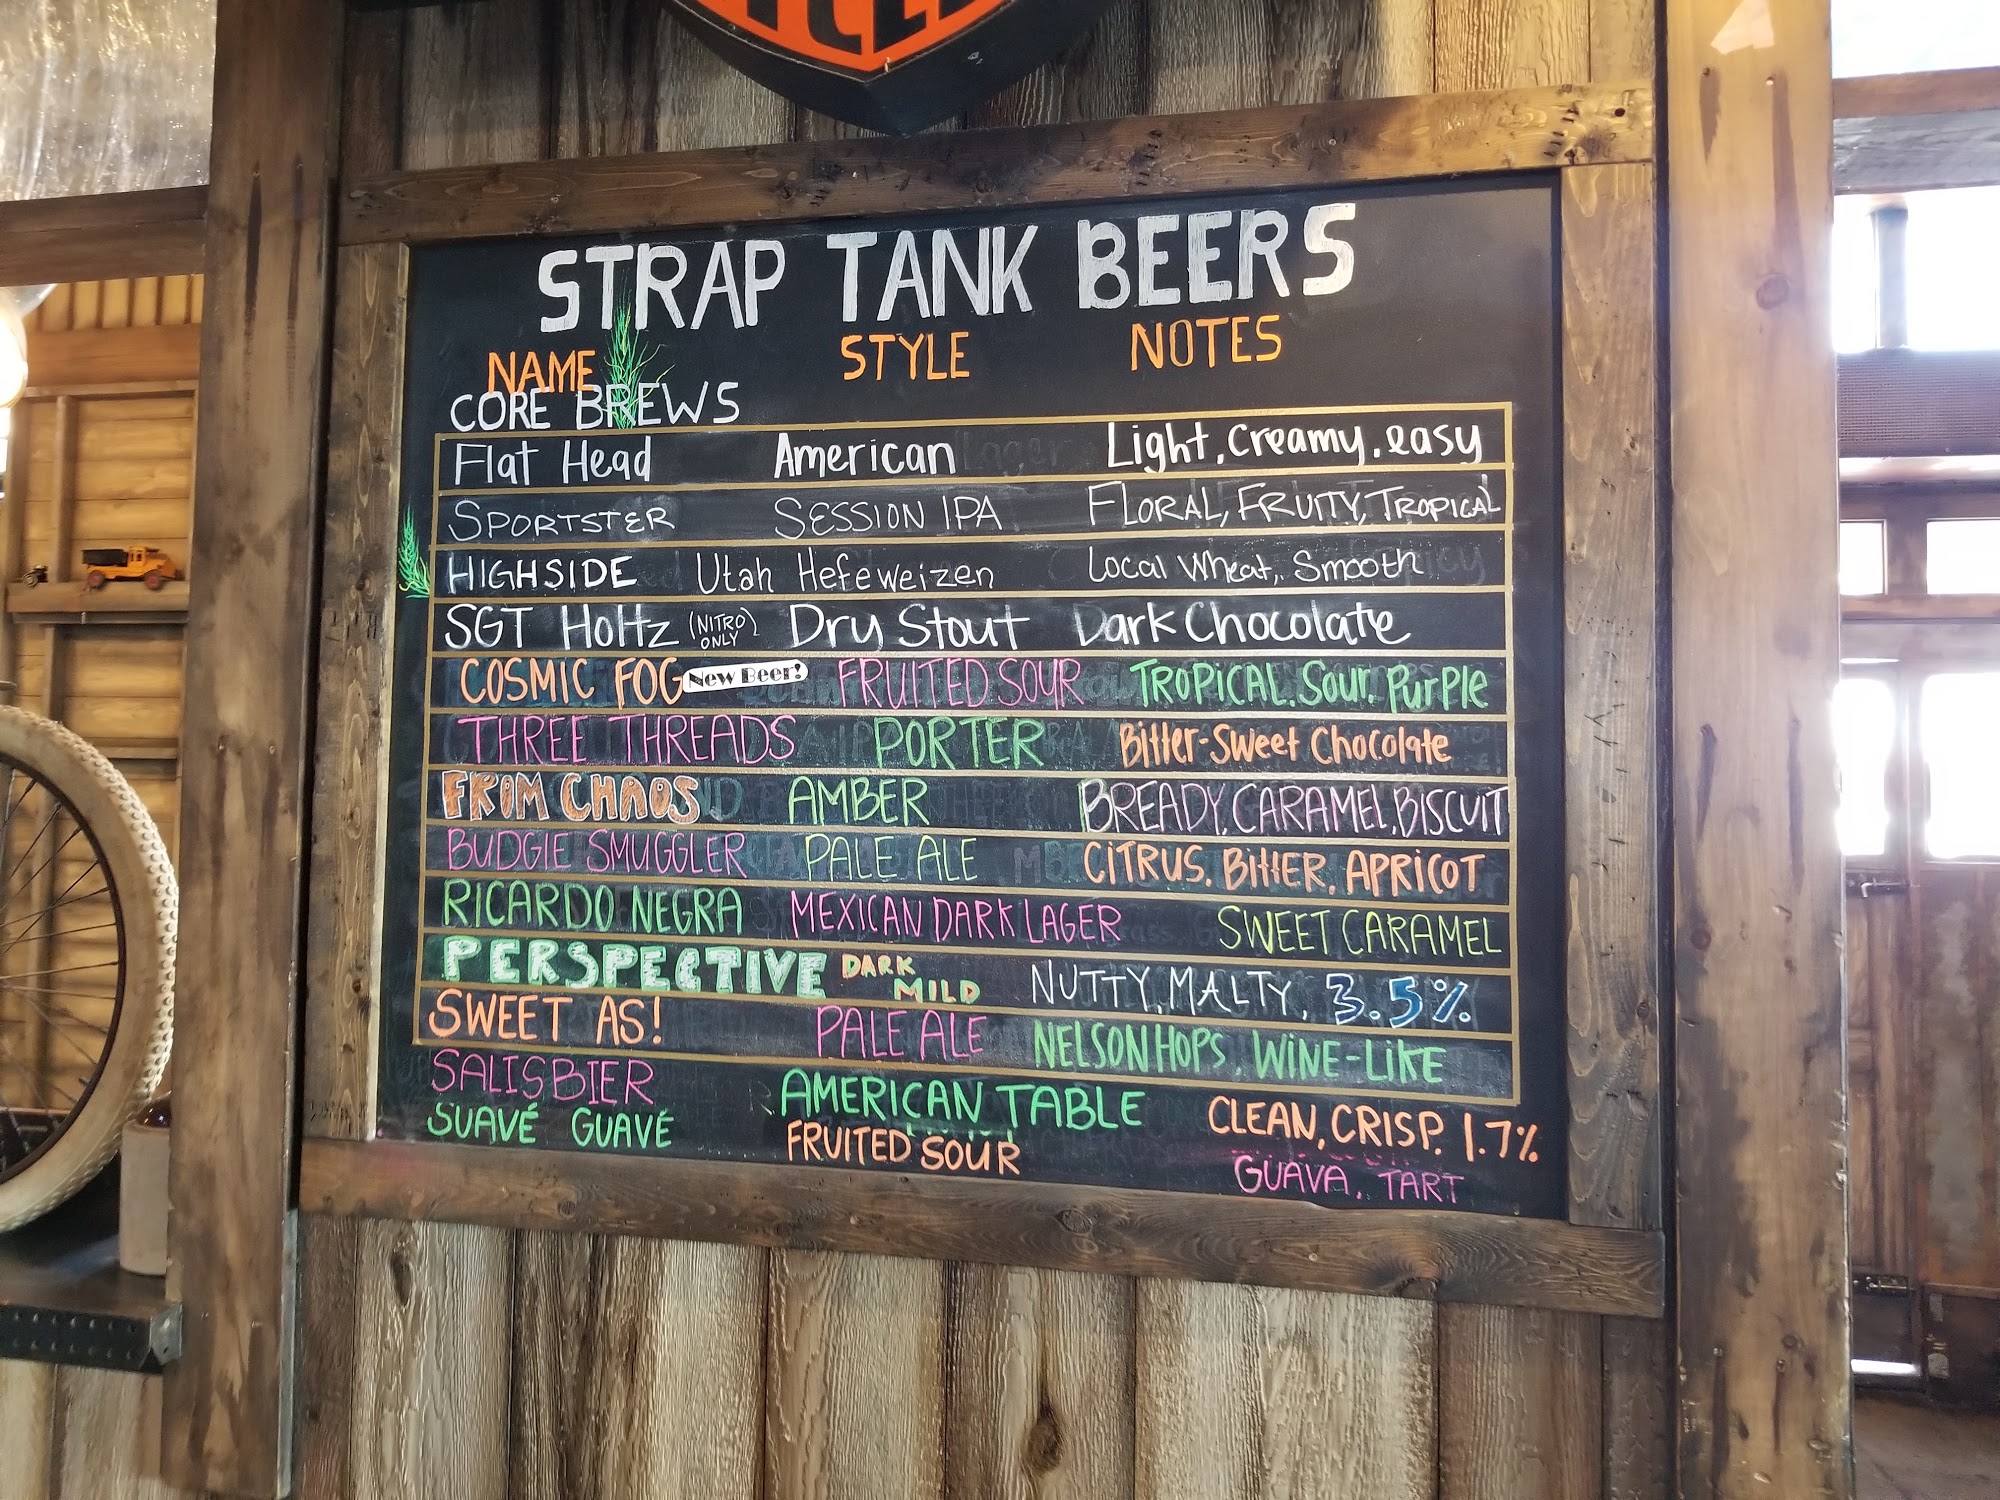 STRAP TANK BEERS
NAME STYLE NOTES
CORE BREWS
Flat Head American Light, Creamy, easy
SPORTSTER SESSION IPA FLORAL, FRUITY, TROPICAL
HIGHSIDE Utah Hefeweizen Local Wheat, Smooth
SGT Holtz (NITRO ONLY) Dry Stout Dark Chocolate
COSMIC FOG New Beer! FRUITED SOUR TROPICAL, Sour, PurPle
THREE THREADS PORTER Bitter-Sweet Chocolate
FROM CHAOS AMBER BREADY, CARAMEL, BISCUIT
BUDGIE SMUGGLER PALE ALE CITRUS, BITTER, APRICOT
RICARDO NEGRA MEXICAN DARK LAGER SWEET CARAMEL
PERSPECTIVE DARK MILD NUTTY, MALTY, 3.5%
SWEET AS! PALE ALE NELSON HOPS, WINE-LIKE
SALISBIER AMERICAN TABLE CLEAN, CRISP. 1.7%
SUAVÉ GUAVÉ FRUITED SOUR GUAVA, TART